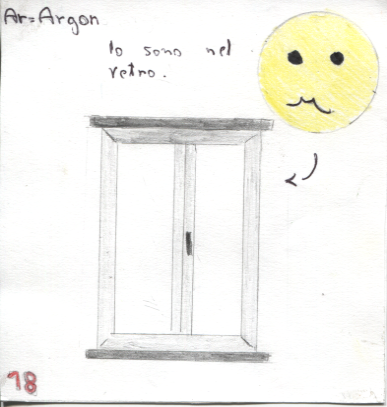 Ar=Argon
Io sono nel
vetro.
18